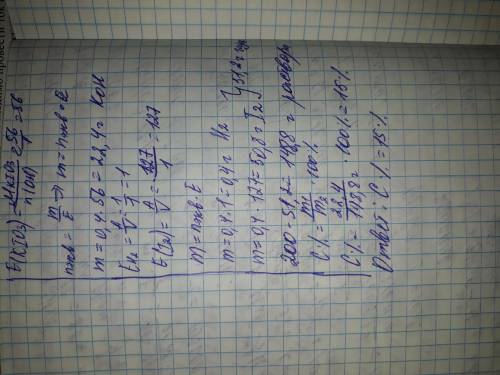 Э(KIO3) = M(KIO3) / n(OH) = 56 / 1 = 56
nэкв = m / Э → m = nэкв = Э
m = 0,4 · 56 = 22,4 г KOH
ЭH2 = A / В = 1 / 1 = 1
Э(I2) = A / В = 127 / 1 = 127
m = nэкв · Э
m = 0,4 · 1 = 0,4 г H2
m = 0,4 · 127 = 50,8 г I2 } 51,2 г
200 - 51,2 = 148,8 г раствора
C% = m1 / m2 · 100%
C% = 22,4 / · 100% = 15%
Ответ: C% = 15%